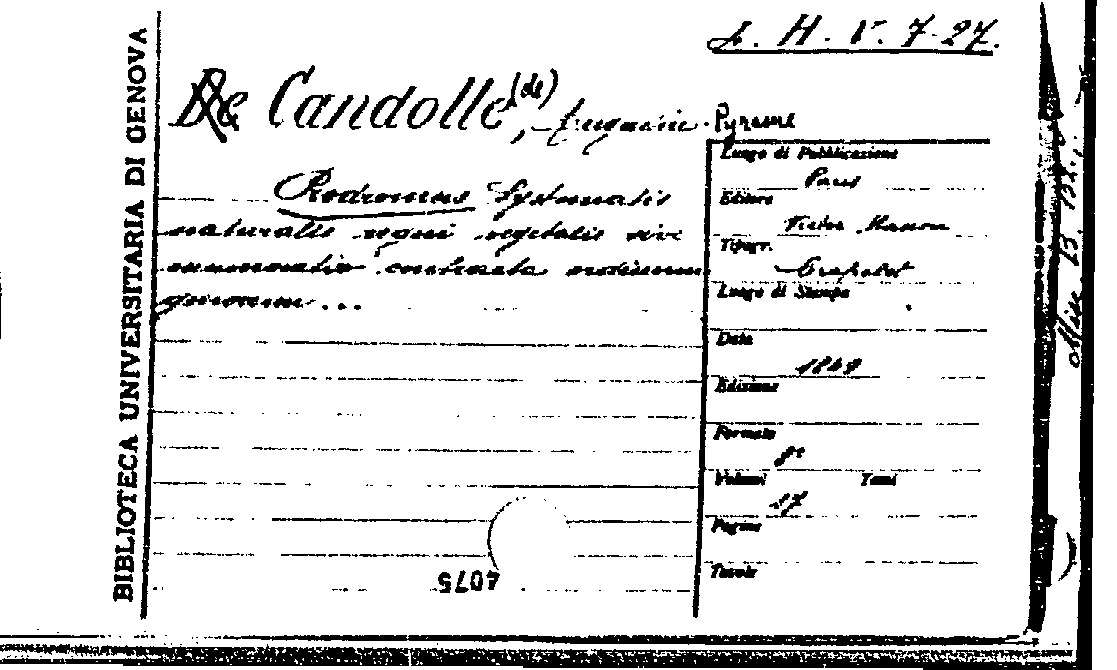 L. H. V. 7-27.
De Candolle (de), Pyrame
Prodromus Systematis
naturalis regni vegetalis sive
enumeratio contracta ordinum
generum ...
BIBLIOTECA UNIVERSITARIA DI GENOVA
Luogo di Pubblicazione
Paris
Editore
Victor Masson
Tipogr.
Luogo di Stampa
Data
1849
Edizione
Formato
8º
Volumi Tomi
17
Pagine
Tavole
4075